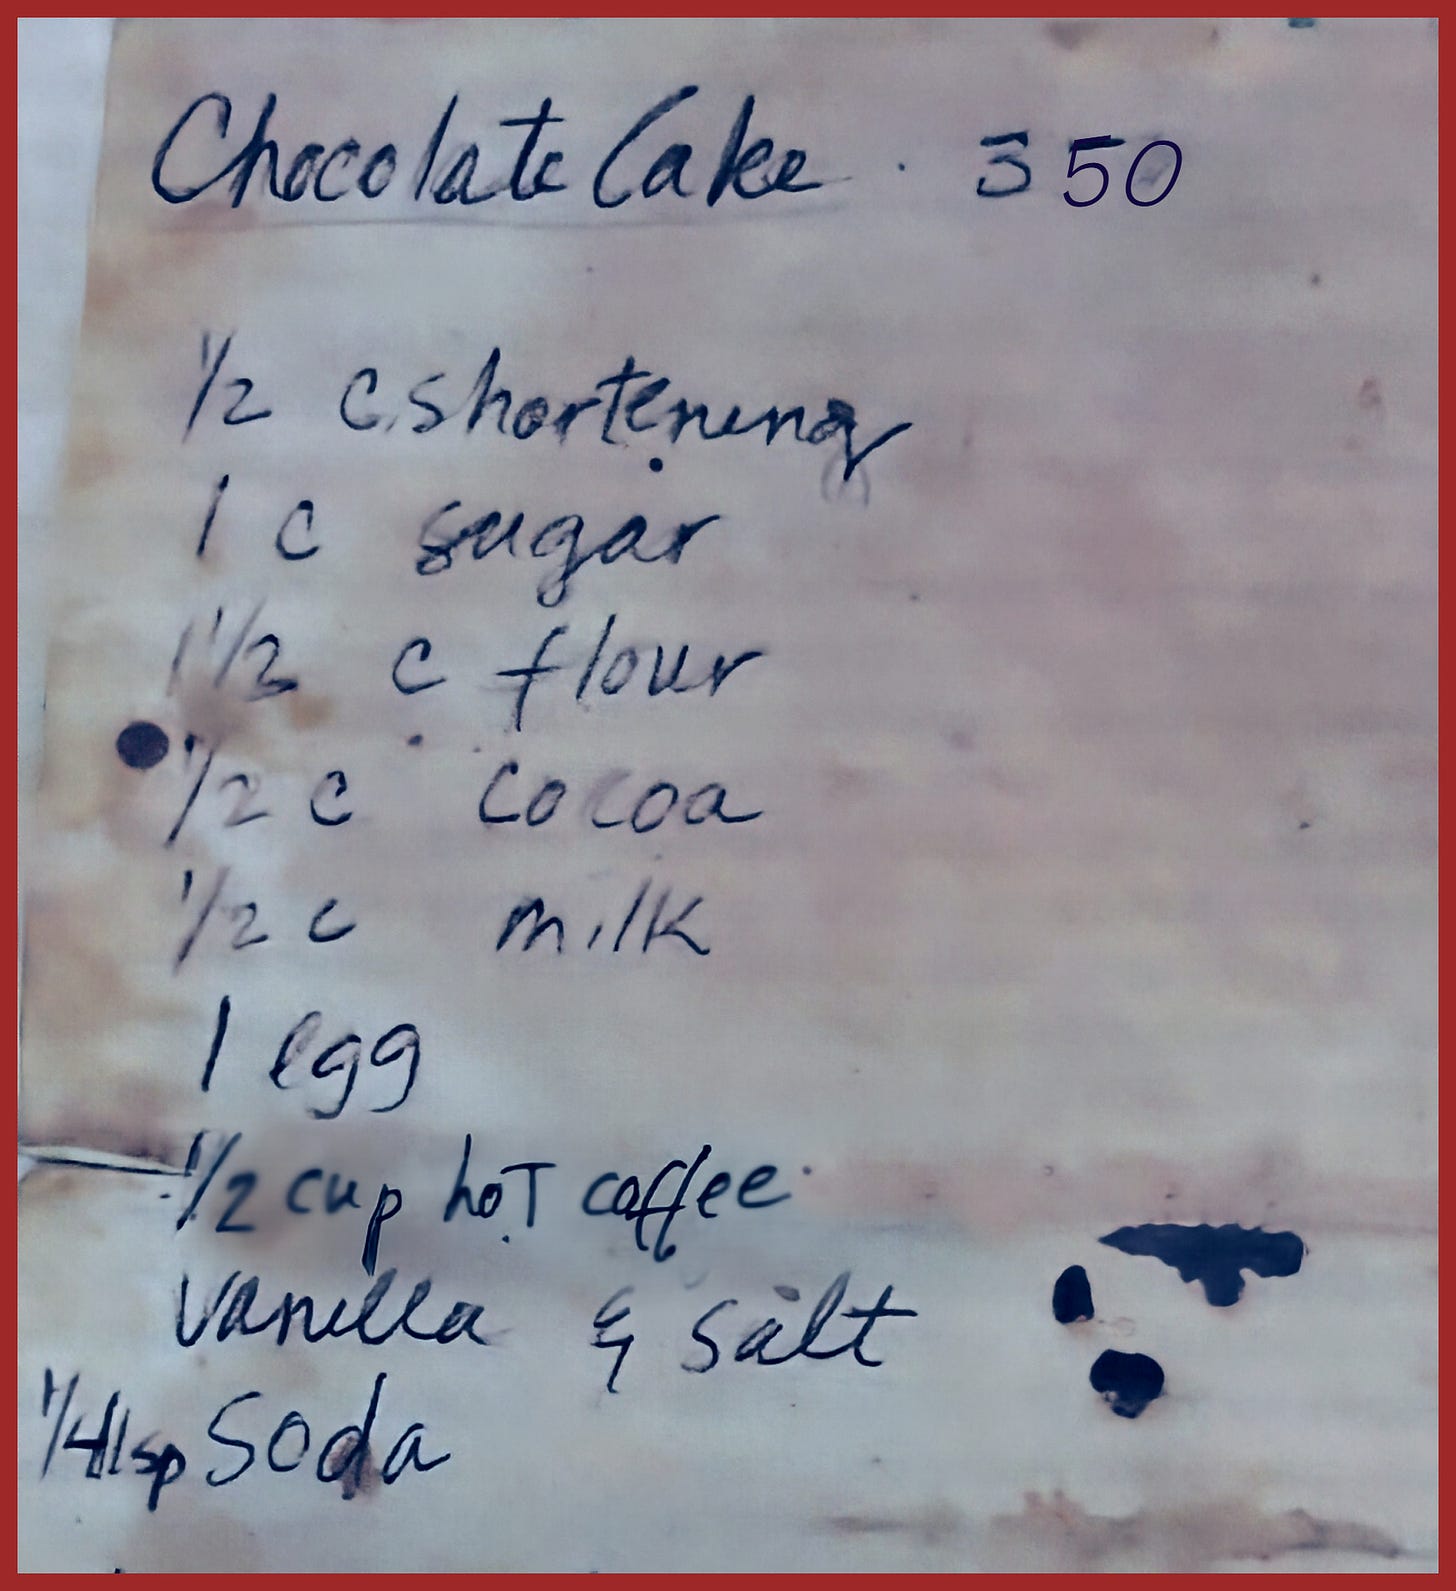 Chocolate Cake . 350
1/2 c. shortening
1 c sugar
1 1/2 c flour
1/2 c cocoa
1/2 c milk
1 egg
1/2 cup hot coffee
vanilla & salt
1/4 tsp soda